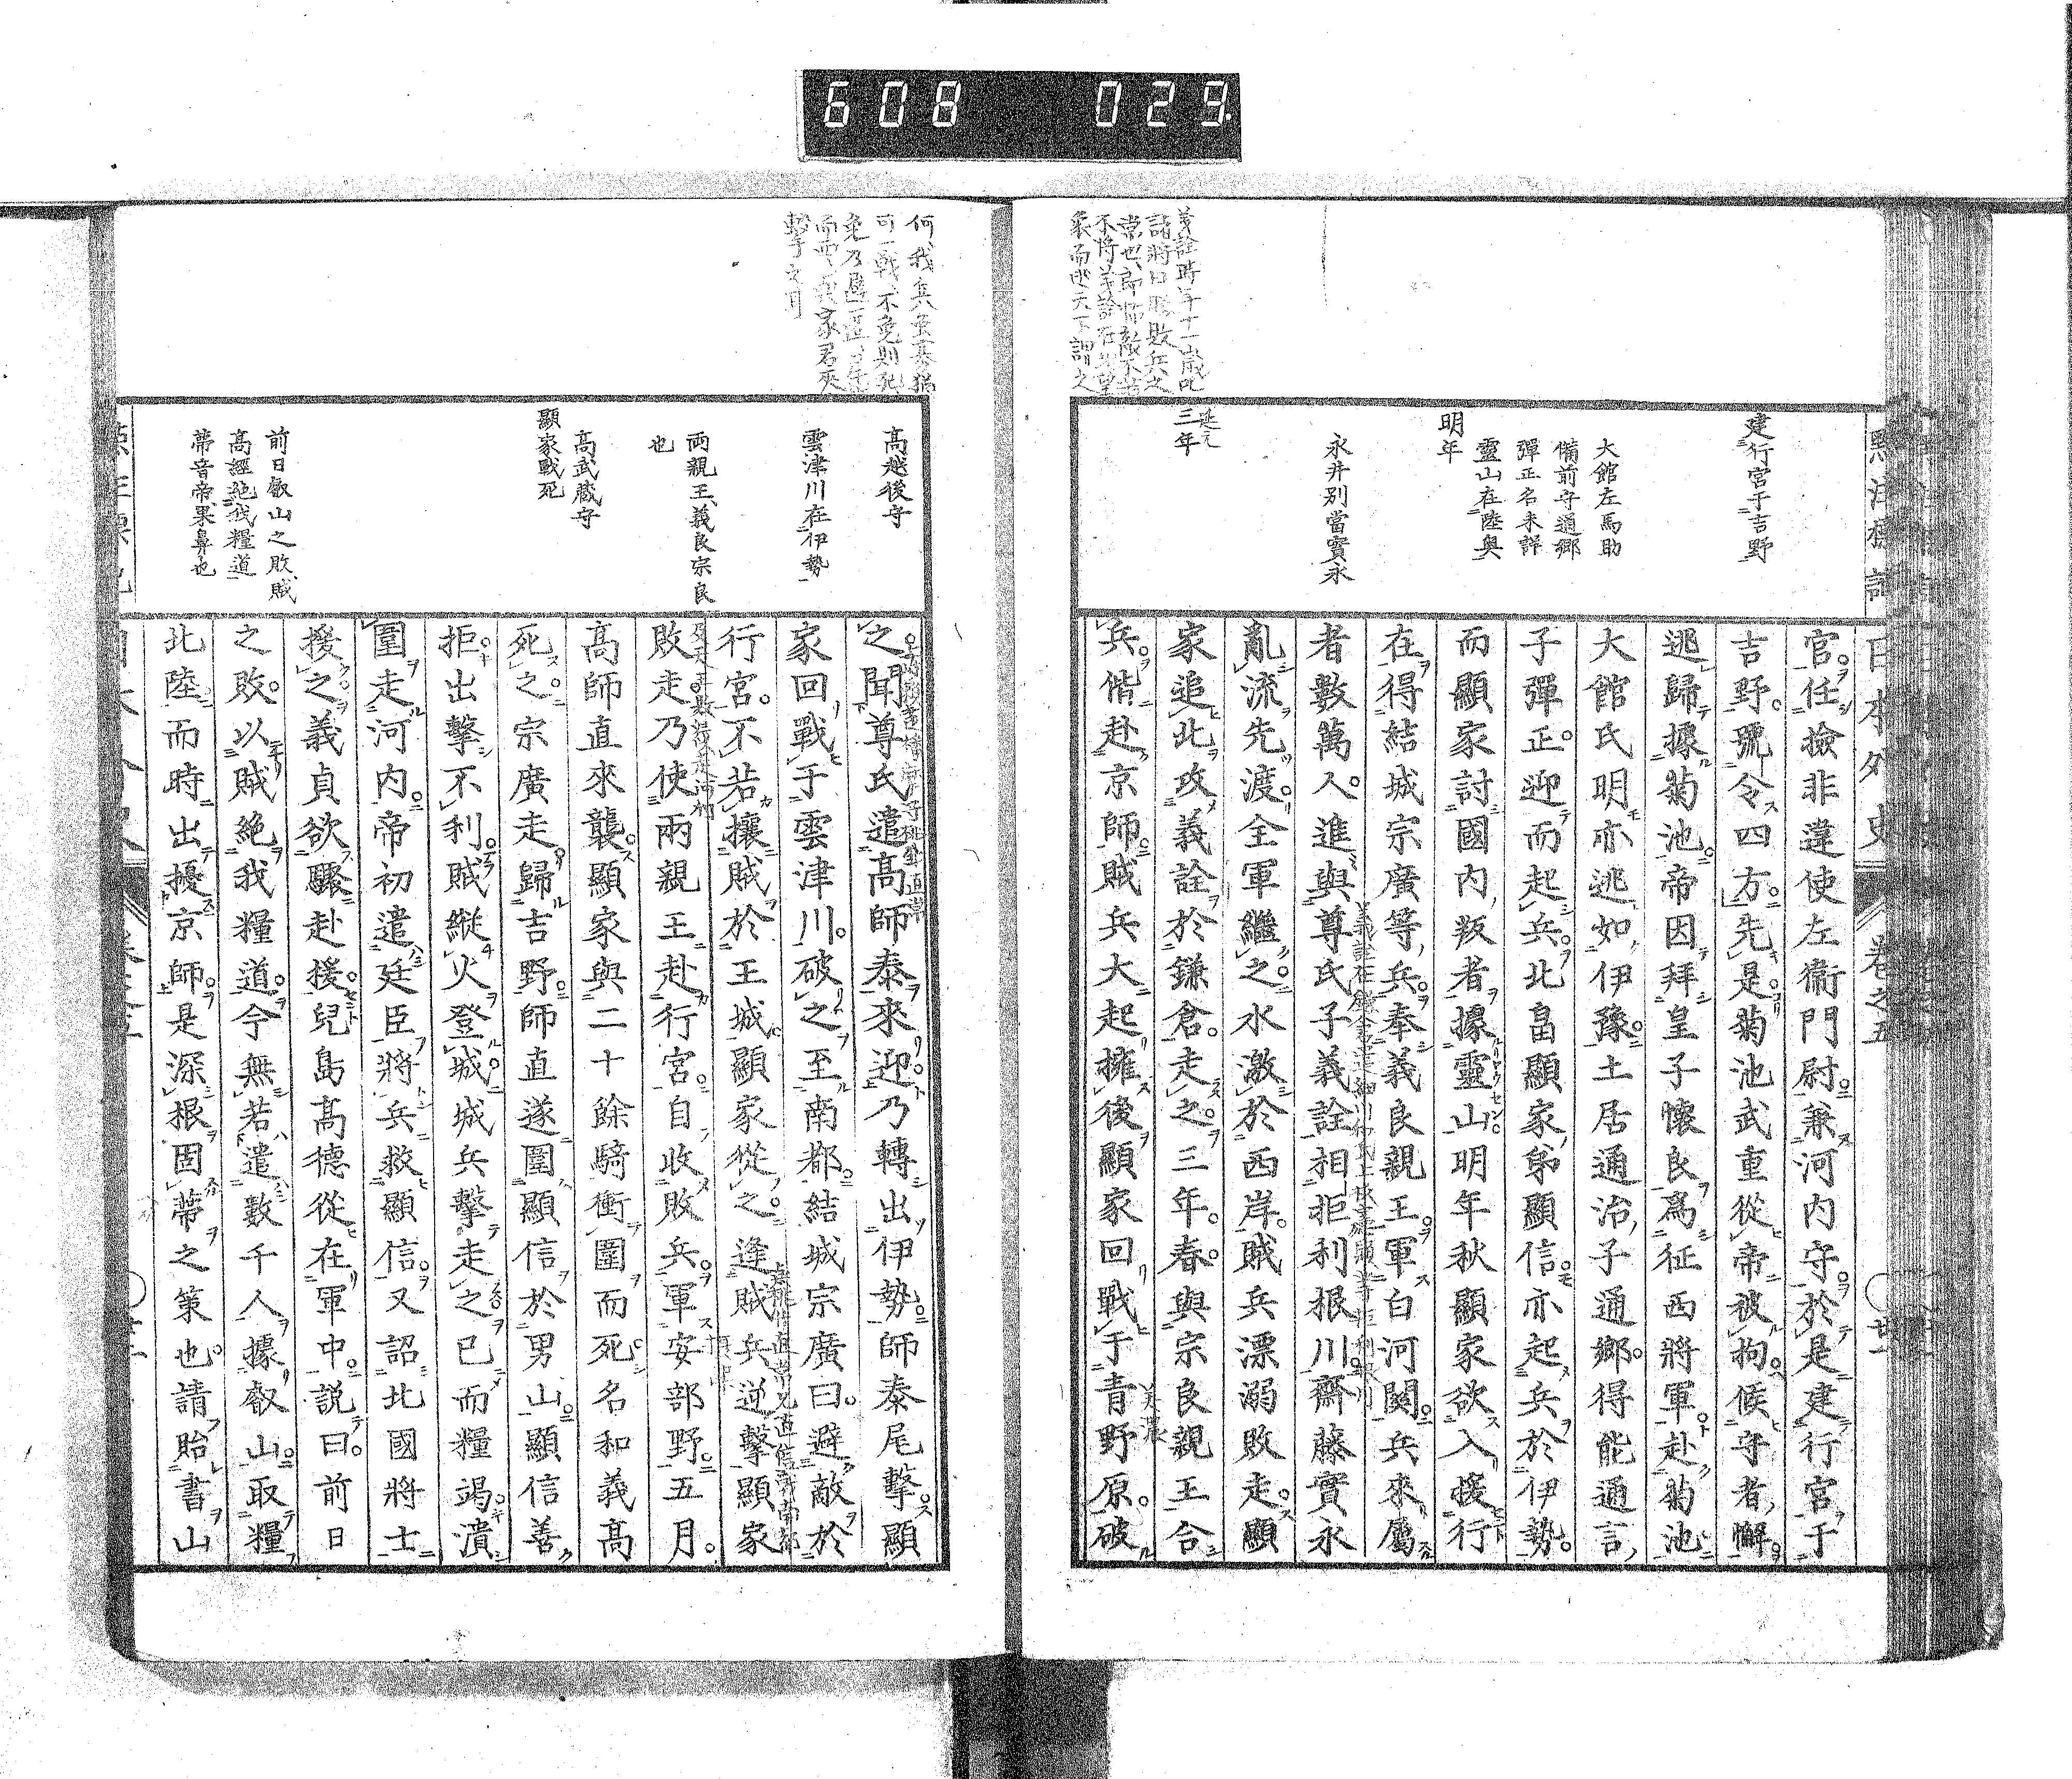 608 029
日本外史
卷之五
官任撿非違使左衞門尉兼河内守於是建行宮于
吉野號令四方先是菊池武重從帝被拘候守者懈
逃歸據菊池帝因拜皇子懷良爲征西將軍赴菊池
大館氏明亦逃如伊豫土居通治子通郷得能通言
子彈正迎而起兵北畠顯家弟顯信亦起兵於伊勢
而顯家討國内叛者據靈山明年秋顯家欲入援行
在得結城宗廣等兵奉義良親王軍白河関兵來屬
者數萬人進與尊氏子義詮相拒利根川齋藤實永
亂流先渡全軍繼之水激於西岸賊兵漂溺敗走顯
家追北攻義詮於鎌倉走之三年春與宗良親王合
兵偕赴京師賊兵大起擁後顯家回戰于青野原破
建行宮于吉野
大館左馬助
備前守通郷
彈正名未詳
靈山在陸奥
明年
永井別當實永
延元
三年
美濃
之聞尊氏遣高師泰來迎乃轉出伊勢師泰尾擊顯
家回戰于雲津川破之至南都結城宗廣曰避敵於
行宮不若攘賊於王城顯家從之逢賊兵逆擊顯家
敗走乃使兩親王赴行宮自收敗兵軍安部野五月
高師直來襲顯家與二十餘騎衝圍而死名和義高
死之宗廣走歸吉野師直遂圍顯信於男山顯信善
拒出擊不利賊縱火登城城兵擊走之已而糧竭潰
圍走河内帝初遣廷臣將兵救顯信又詔北國將士
援之義貞欲驟赴援兒島高德從在軍中説曰前日
之敗以賊絶我糧道今無若遣數千人據叡山取糧
北陸而時出擾京師是深根固蔕之策也請貽書山
高越後守
雲津川在伊勢
両親王義良宗良
也
高武蔵守
顯家戰死
前日叡山之敗賊
高經絶我糧道
蔕音帝果鼻也